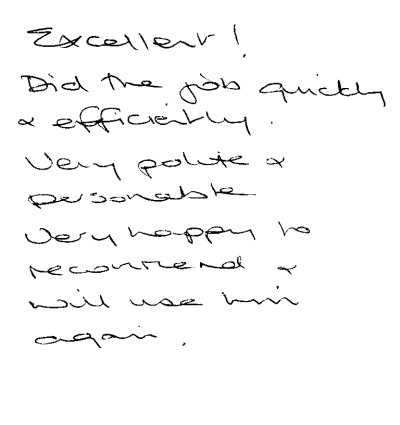 Excellent!
Did the job quickly
& efficiently.
Very polite &
personable
Very happy to
recommend &
will use him
again.